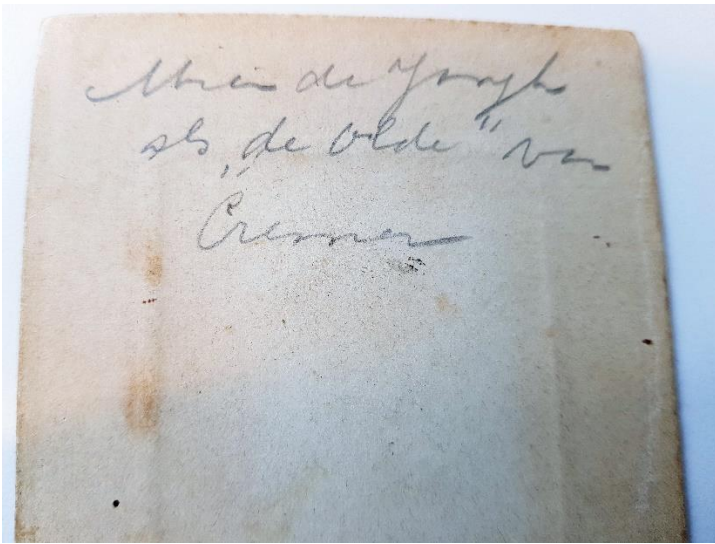 Mien de Jongh
als „de Olde" van
Cremer